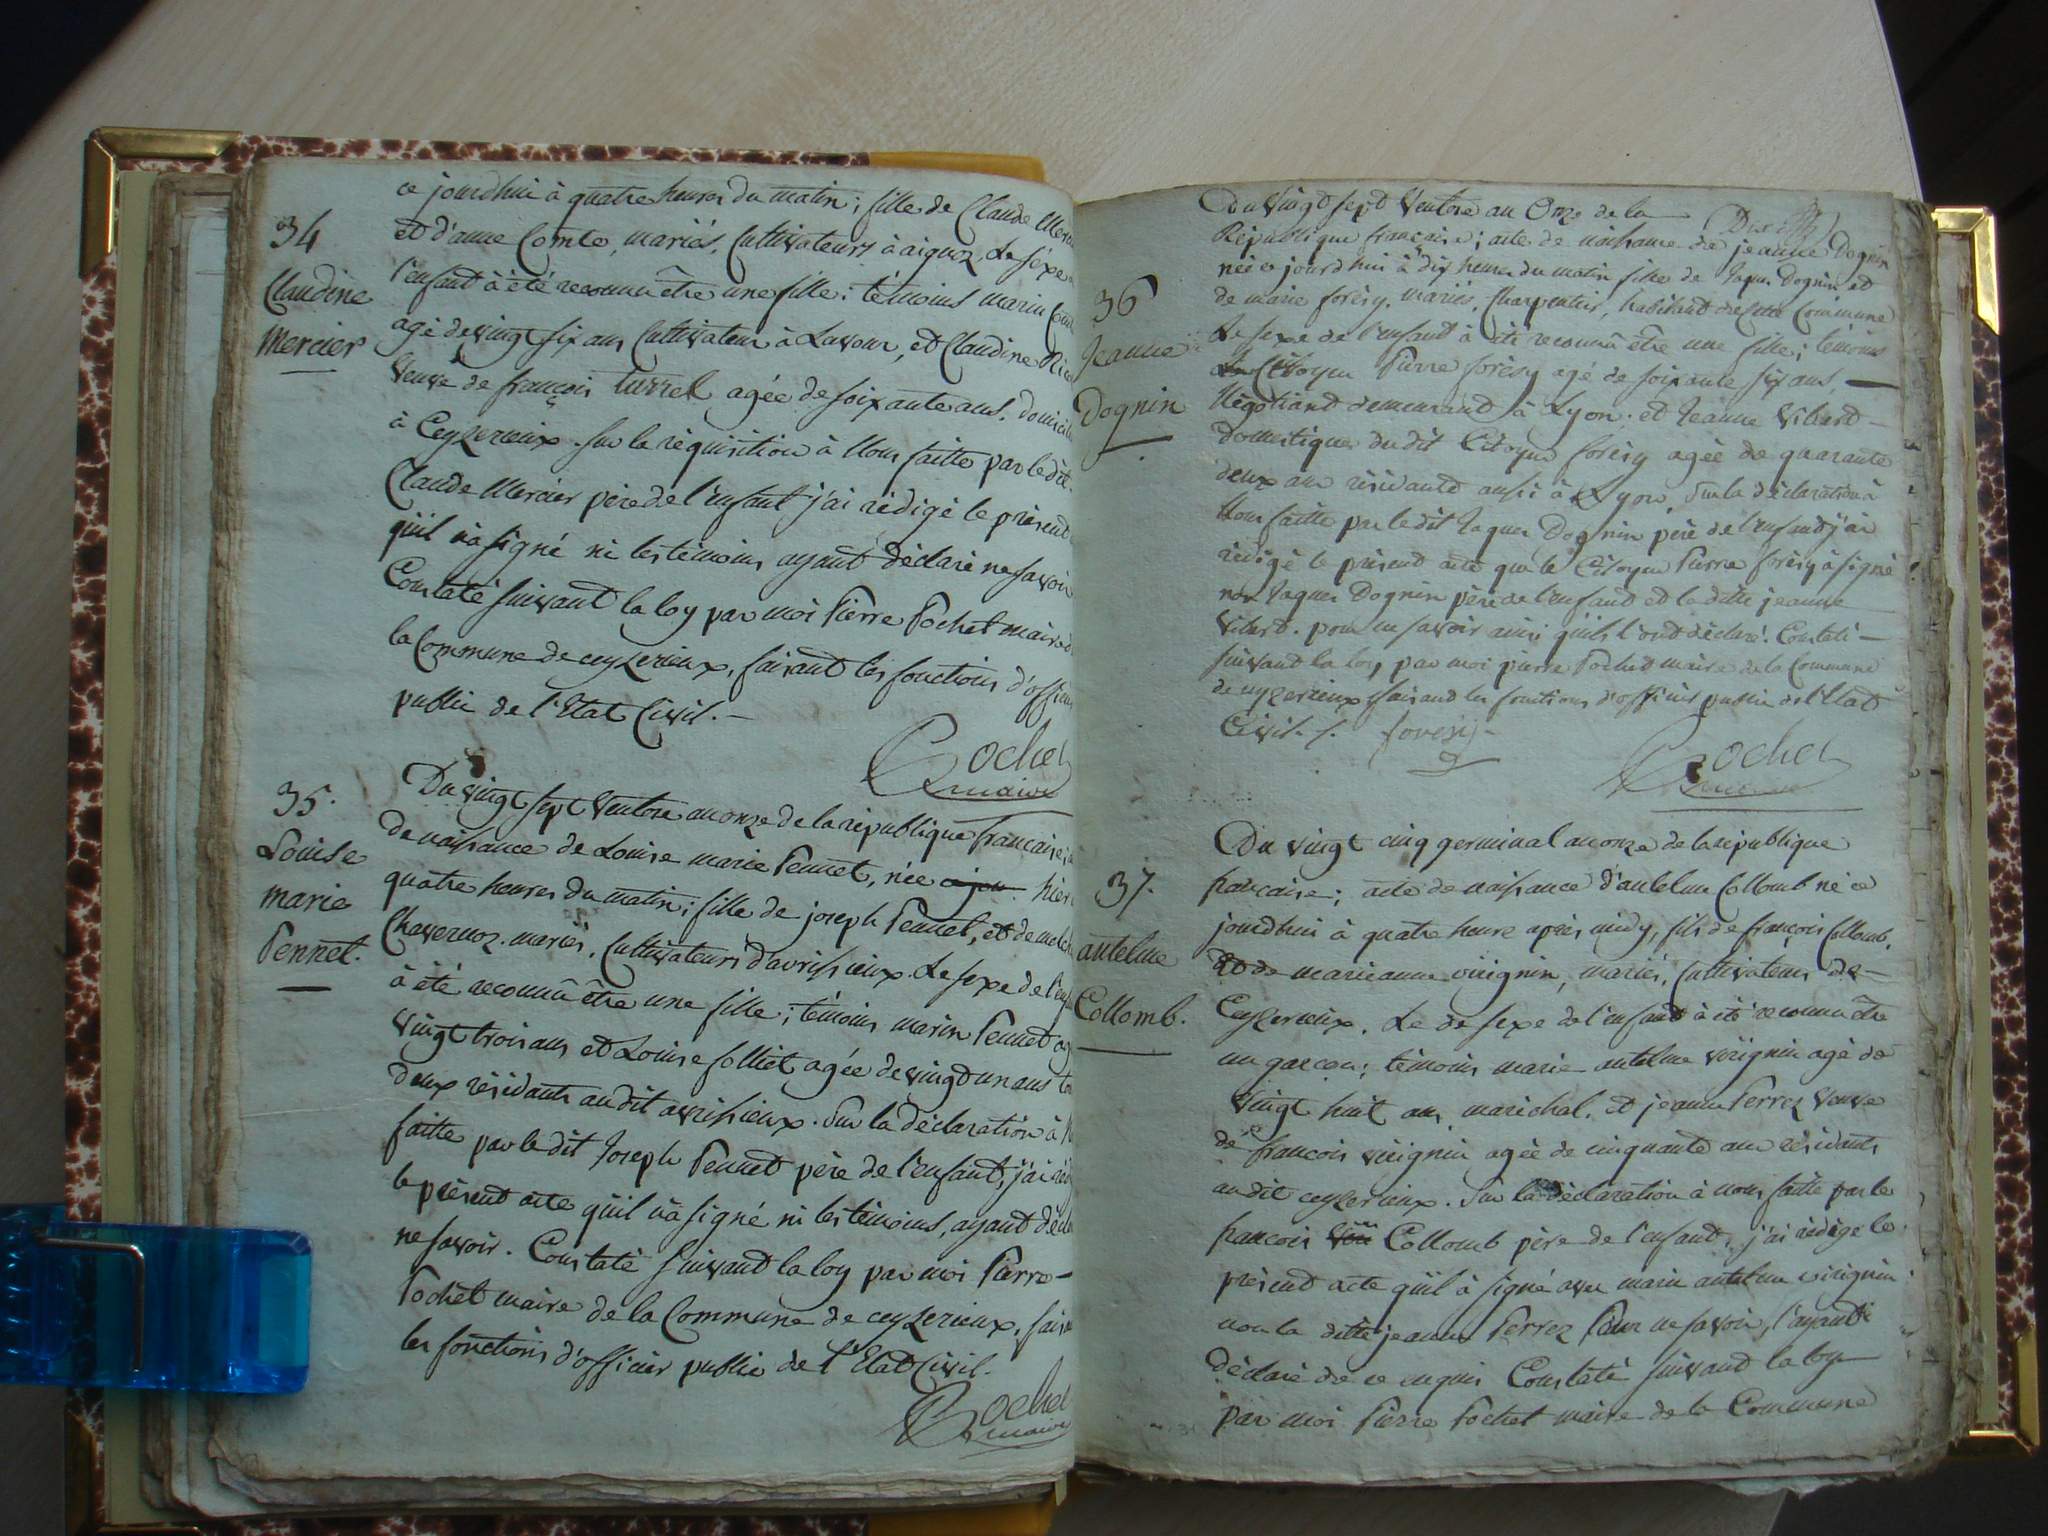 ce jourdhui à quatre heures du matin; fille de Claude
34
et d'anne Comte, mariés, Cultivateurs à aignoz. Le sexe
Claudine
l'enfant à été reconnu être une fille; témoins marin
Mercier
agé de vingt six ans Cultivateur à Lavour, et Claudine
Veuve de françois turrel agée de soixante ans,
à Ceyzerieux. sur la réquisition à Nous faitte par le dit
Claude Mercier père de l'enfant j'ai rédigé le présent
quil n'a signé ni les témoins ayant déclaré ne savoir
Constaté suivant la loy par moi Pierre Pochet maire
la Commune de ceyzerieux, faisant les fonctions
public de l'Etat Civil. —
Pochet
maire
35.
Louise
marie
Pennet.
Du vingt sept Ventose an onze de la république francaise;
de naissance de Louise marie Pennet, née hier
quatre heures du matin; fille de joseph Pennet, et de
Chavernoz. mariés, Cultivateurs d'avrissieux. Le sexe de
à été reconnu être une fille; témoins marin Pennet
Vingt trois ans et Louise solliet agée de vingt un ans
deux résidants au dit avrissieux. Sur la déclaration à
faitte par le dit Joseph Pennet père de l'enfant, j'ai
le présent acte quil n'a signé ni les témoins, ayant
ne savoir. Constaté suivant la loy par moi Pierre —
Pochet maire de la Commune de ceyzerieux,
les fonctions d'officier public de l'Etat Civil.
Pochet
maire
Du Vingt sept Ventose an Onze de la
République francaise; acte de naissance de jeanne Dognin
née ce jourd'hui à dix heures du matin fille de Jaques Dognin et
36
Jeanne
Dognin
de marie foresy. mariés, Charpentier, habitant de cette Commune
Le sexe de l'enfant à été reconnu être une fille; témoins
Citoyen Pierre foresy agé de soixante six ans —
Négotiant demeurant à Lyon; et Jeanne Vibert —
domestique du dit Citoyen foresy agée de quarante
deux ans résidante aussi à Lyon, sur la déclaration à
Nous faitte par le dit Jaques Dognin père de l'enfant j'ai
rédigé le présent acte que le Citoyen Pierre foresy à signé
non Jaques Dognin père de l'enfant et la ditte jeanne
Vibert. pour ne savoir ainsi quils l'ont déclaré. Constaté —
suivant la loy par moi pierre Pochet maire de la Commune
de ceyzerieux faisant les fonctions d'officier public de l'Etat
Civil. /. foresy
Pochet
maire
Du vingt cinq germinal an onze de la république
37.
antelme
Collomb.
francaise; acte de naissance d'antelme Collomb né ce
jourdhui à quatre heure après midy, fils de françois Collomb.
et de marieanne virignin, mariés, Cultivateurs de —
Ceyzerieux. Le de sexe de l'enfant à été reconnu être
un garcon; témoins marie antelme virignin agé de
Vingt huit ans, maréchal. et jeanne Perrez Veuve
de francois virignin agée de cinquante ans résidants
au dit ceyzerieux. Sur la déclaration à nous faitte par le
francois Collomb père de l'enfant, j'ai rédigé le
présent acte quil à signé avec marie antelme virignin
non la ditte jeanne Perrez Pour ne savoir, l'ayant
déclaré de ce enquis Constaté suivant la loy
par moi Pierre Pochet maire de la Commune